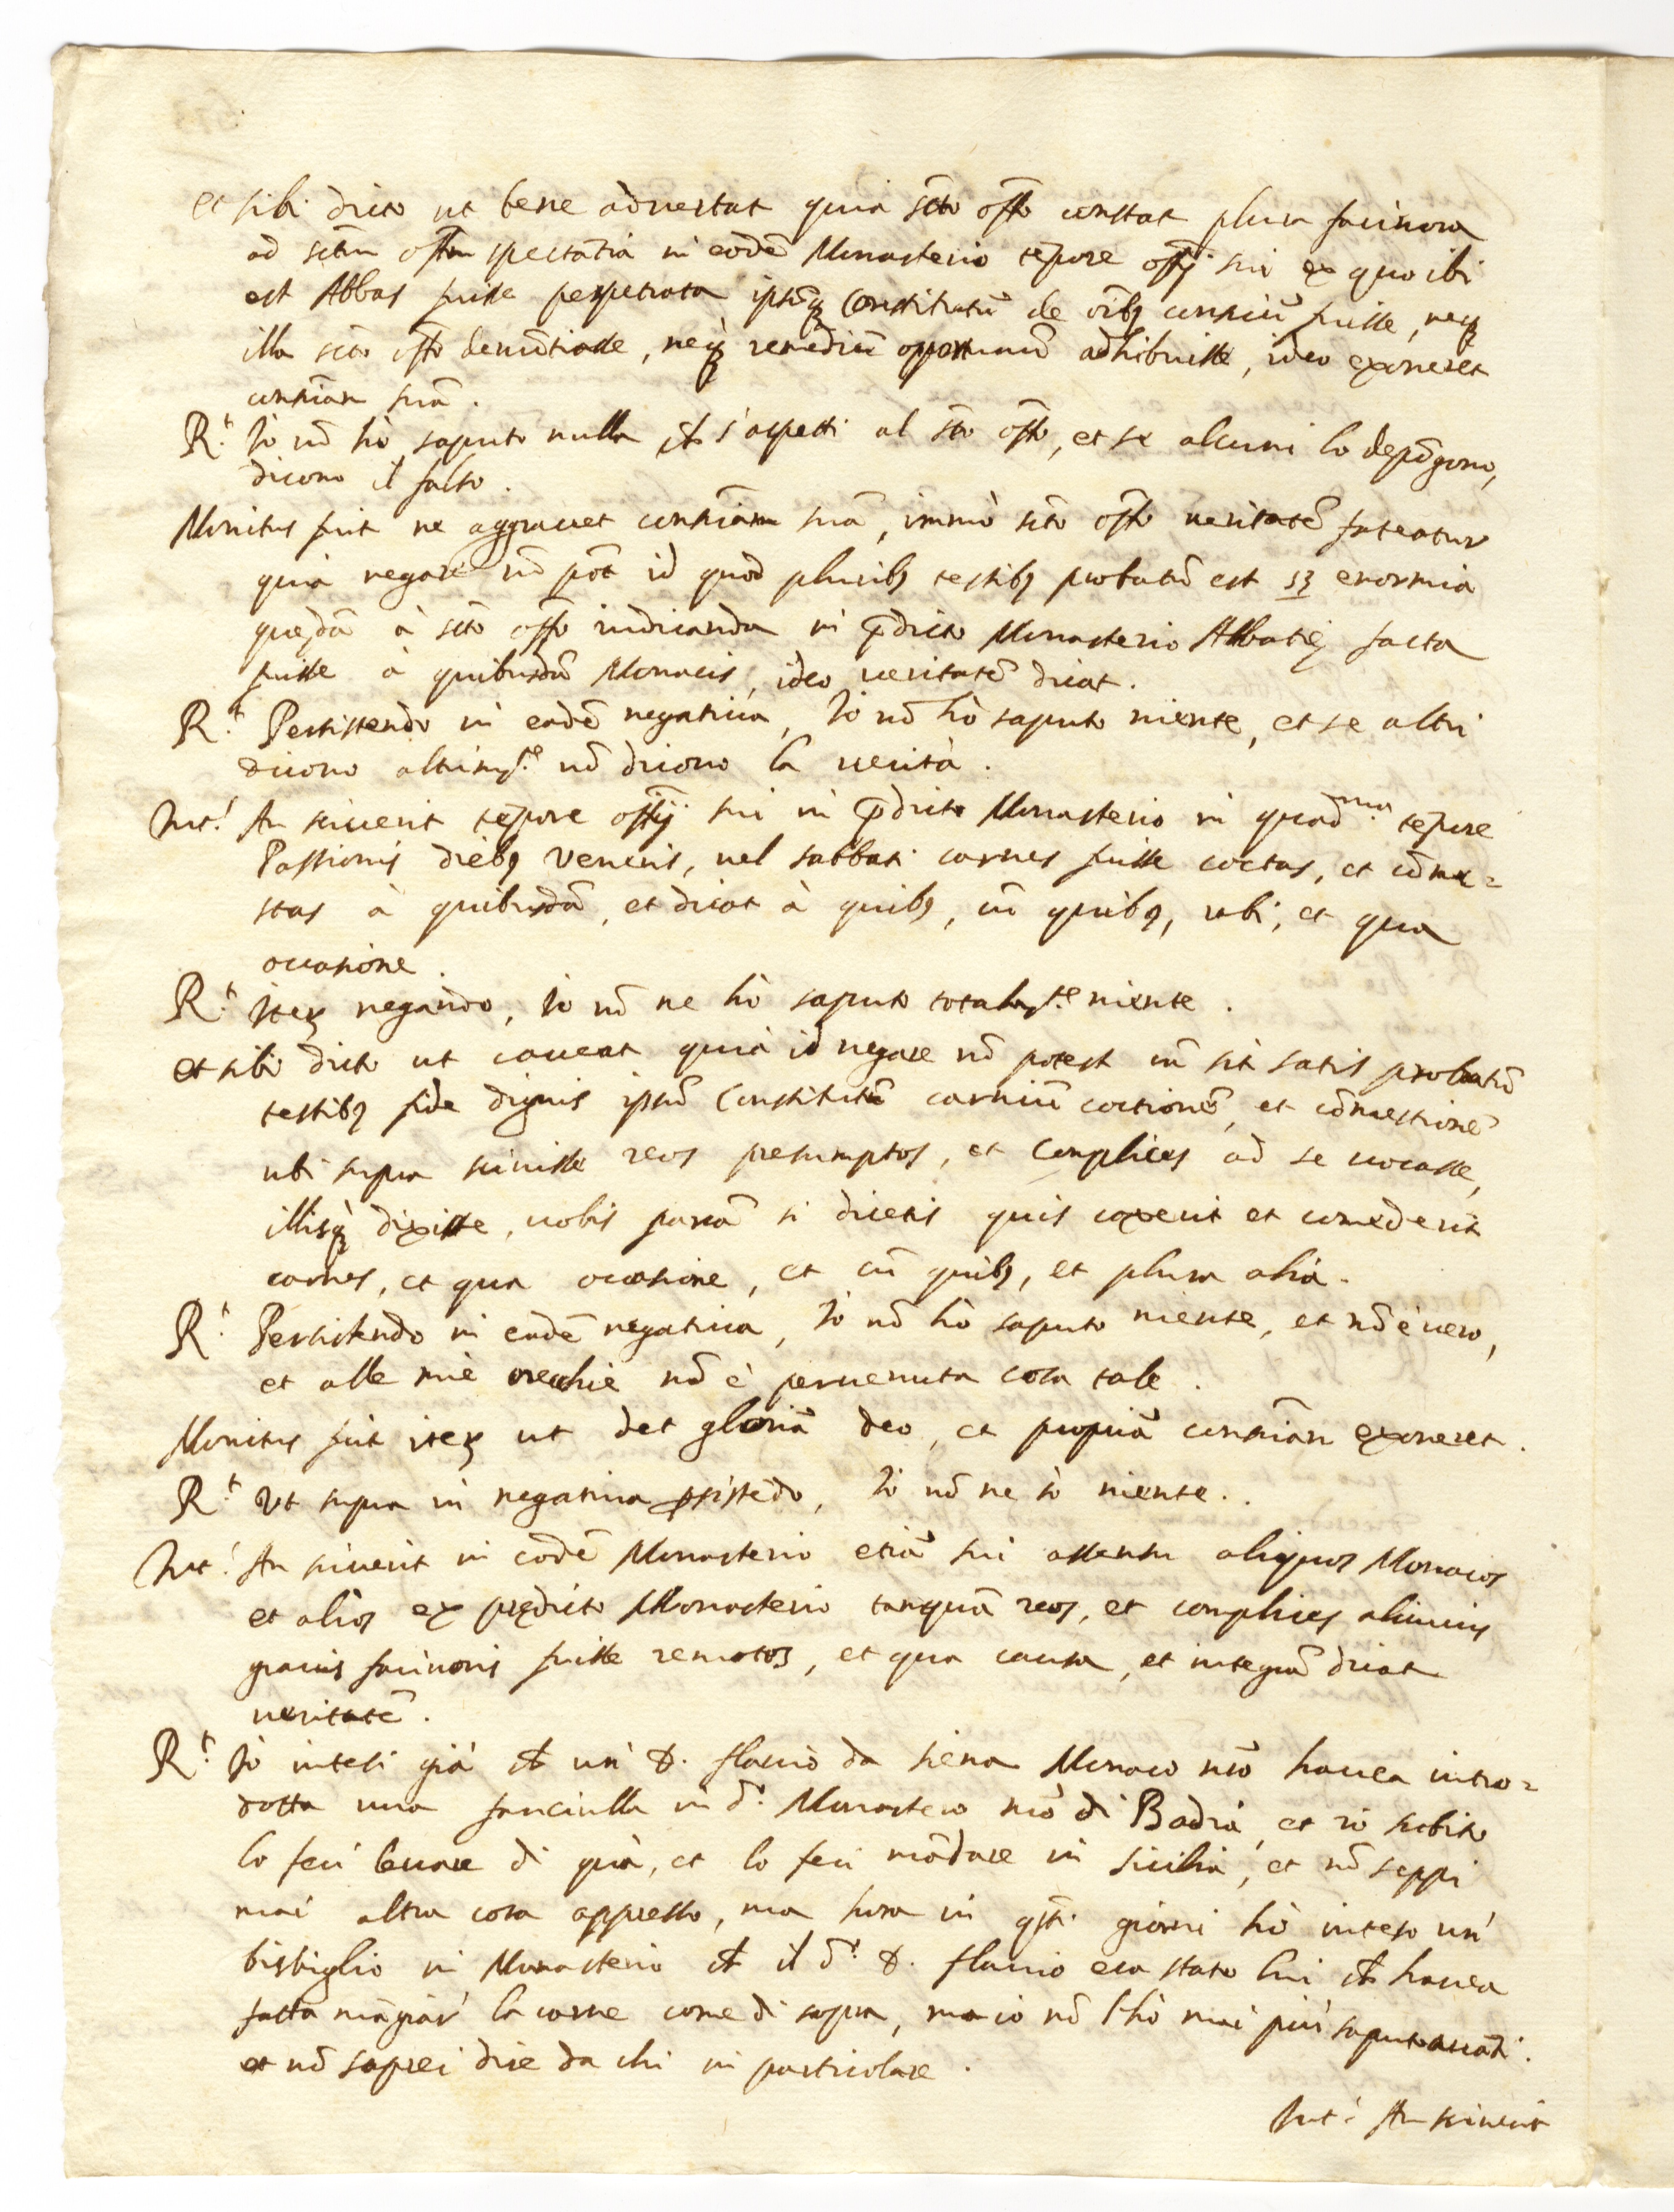 et sibi dicto ut bene advertat quia scto offo constat plura facinora
ad sctm offm spectātia in eodē Monasterio tēpore offij sui ex quo ibi
est Abbas fuisse perpetrata ipsūq Constitutū de oībq consciū fuisse, neq
illa scto offo denūtiasse, neq remediū opportunū adhibuisse, ideo exoneret
consciām suā.
R.t Io nō hò saputo nulla ch s'aspetti al sto offo, et se alcuni lo depōgono,
dicono il falso.
Monitus fuit ne aggravet consciām suā, immò scto offo veritatē fateatur
quia negare nō pōt id quod pluribq testibq probatū est sz enormia
quędā à scto offo iudicanda in p̄dicto Monasterio Abbatię facta
fuisse à quibusdā Monacis, ideo veritatē dicat.
R.t Persistendo in eadē negativa, Io nō hò saputo niente, et se altri
dicono altrimte nō dicono la verità.
Int.s An sciverit tēpore offij sui in p̄dicto Monasterio in quadma tēpore
Passionis diebq Veneris, vel sabbati carnes fuisse coctas, et cōme=
stas à quibusdā, et dicat à quibq, cū quibq, ubi, et qua
occasione.
R.t Iterz negando, Io nō ne hò saputo totalmte niente.
et sibi dicto ut caveat quia id negare nō potest cū sit satis probatū
testibq fide dignis ipsū Constitutū carniū coctionē, et cōmestionē
ubi supra scivisse reos presumptos, et complices ad se vocasse,
illisq dixisse, vobis parcā si dicetis quis coxerit et comederit
carnes, et qua occasione, et cū quibq, et plura alia.
R.t Persistendo in eadē negativa, Io nō hò saputo niente, et nō è vero,
et alle mie orecchie nō è pervenuta cosa tale.
Monitus fuit iterz ut det gloriā deo, et propriā consciām exoneret.
R.t Ut supra in negativa psistēdo, Io nō ne sò niente.
Int.s An sciverit in eodē Monasterio etiā sui assensu aliquos Monacos
et alios ex prędicto Monasterio tanquā reos, et complices alicuius
gravis facinoris fuisse remotos, et qua causa, et integrā dicat
veritatē.
R.t Io intesi già ch un' D. Flavio da Siena Monaco nrō havea intro=
dotta una fanciulla in d.o Monastero nrō di Badia, et io subito
lo feci levare di quà, et lo feci mādare in Sicilia, et nō seppi
mai altra cosa appresso, ma hora in qsti giorni hò inteso un'
bisbiglio in Monasterio ch il d.o D. Flavio era stato lui ch havea
fatta māgiar' la carne come di sopra, ma io nō l'hò mai più saputo avāti.
et nō saprei dire da chi in particolare.
Int.s An sciverit